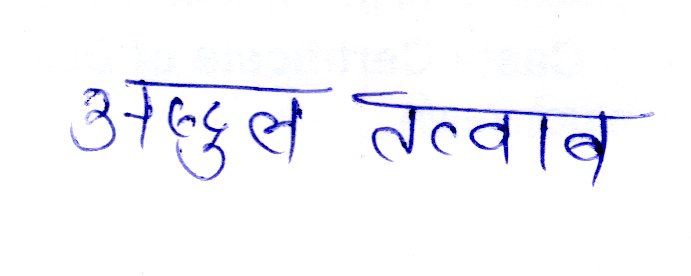 अब्दुल तत्वाब